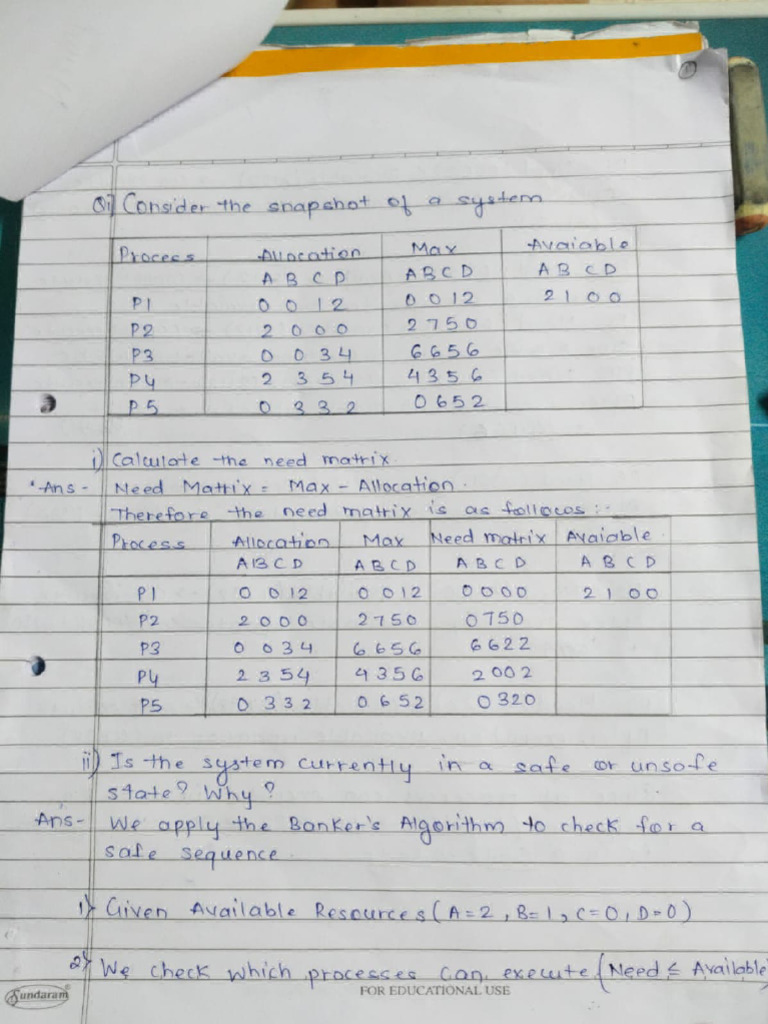 1
Q1) Consider the snapshot of a system
Process Allocation Max Avaiable
A B C D A B C D A B C D
P1 0 0 1 2 0 0 1 2 2 1 0 0
P2 2 0 0 0 2 7 5 0
P3 0 0 3 4 6 6 5 6
P4 2 3 5 4 4 3 5 6
P5 0 3 3 2 0 6 5 2
i) Calculate the need matrix.
Ans - Need Matrix = Max - Allocation.
Therefore the need matrix is as follows :-
Process Allocation Max Need matrix Avaiable
A B C D A B C D A B C D A B C D
P1 0 0 1 2 0 0 1 2 0 0 0 0 2 1 0 0
P2 2 0 0 0 2 7 5 0 0 7 5 0
P3 0 0 3 4 6 6 5 6 6 6 2 2
P4 2 3 5 4 4 3 5 6 2 0 0 2
P5 0 3 3 2 0 6 5 2 0 3 2 0
ii) Is the system currently in a safe or unsafe
state? Why?
Ans - We apply the Banker's Algorithm to check for a
safe sequence.
1) Given Available Resources (A=2, B=1, C=0, D=0)
2) We check which processes can execute (Need ≤ Available)
Sundaram FOR EDUCATIONAL USE